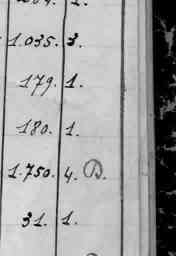 1.035. 3.
179. 1.
180. 1.
1.750. 4. B.
31. 1.